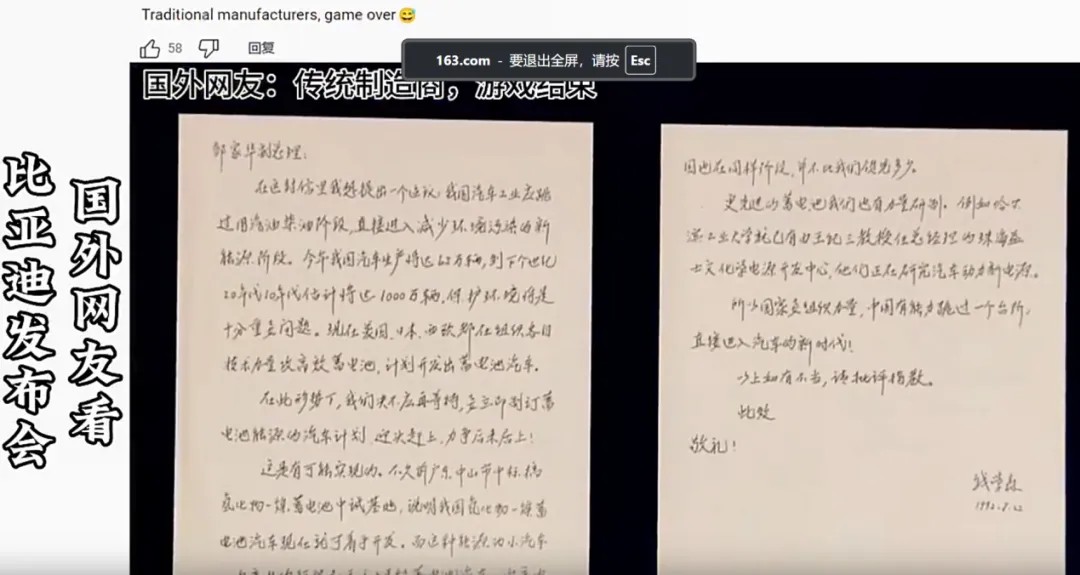 Traditional manufacturers, game over😅
58
回复
163.com - 要退出全屏，请按 Esc
国外网友：传统制造商，游戏结束
国外网友看
比亚迪发布会
邹家华副总理：
在这封信里我想提出一个建议：我国汽车工业应跳
过用汽油柴油阶段，直接进入减少环境污染的新
能源阶段。今年我国汽车生产将达62万辆，到下个世纪
20年代10年代估计将达1000万辆，保护环境将是
十分重要问题。现在美国、日本、西欧都在组织各自
技术力量攻高效蓄电池，计划开发出蓄电池汽车。
在此形势下，我们决不应再等待，要立即制订蓄
电池能源的汽车计划，迎头赶上，力争后来居上！
这是有可能实现的。不久前广东中山市中标搞
氢化物-镍蓄电池中试基地，说明我国氢化物-镍蓄
电池汽车现在就可着手开发。而这种能源的小汽车
国也在同样阶段，并不比我们领先多少。
更先进的蓄电池我们也有力量研制。例如哈尔
滨工业大学就已有由王纪三教授任总经理的珠海益
士文化学电源开发中心，他们正在研究汽车动力新电源。
所以国家要组织力量，中国有能力跳过一个台阶，
直接进入汽车的新时代！
以上如有不当，请批评指教。
此致
敬礼！
钱学森
1992.8.22